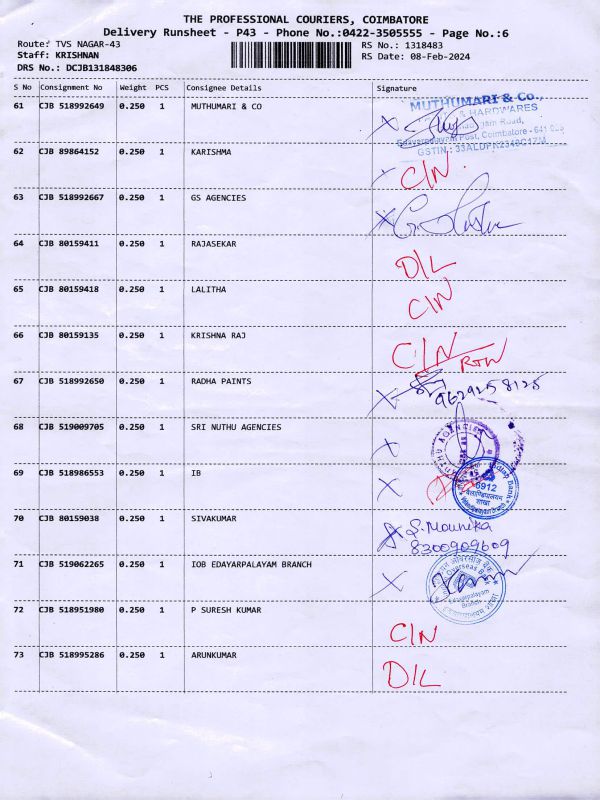 THE PROFESSIONAL COURIERS, COIMBATORE
Delivery Runsheet - P43 - Phone No.:0422-3505555 - Page No.:6
Route: TVS NAGAR-43 RS No.: 1318483
Staff: KRISHNAN RS Date: 08-Feb-2024
DRS No.: DCJB131848306
S No Consignment No Weight PCS Consignee Details Signature
61 CJB 518992649 0.250 1 MUTHUMARI & CO
MUTHUMARI & Co.,
& HARDWARES
Road,
Edayarpalayam Post, Coimbatore - 641
GSTIN : 33ALDPK2349C1ZM
62 CJB 89864152 0.250 1 KARISHMA C/N
63 CJB 518992667 0.250 1 GS AGENCIES
64 CJB 80159411 0.250 1 RAJASEKAR D/L
65 CJB 80159418 0.250 1 LALITHA C/N
66 CJB 80159135 0.250 1 KRISHNA RAJ C/N RTN
67 CJB 518992650 0.250 1 RADHA PAINTS 9629258125
68 CJB 519009705 0.250 1 SRI NUTHU AGENCIES
69 CJB 518986553 0.250 1 IB
Indian Bank
6912
शाखा
70 CJB 80159038 0.250 1 SIVAKUMAR S. Mounika
8300909609
71 CJB 519062265 0.250 1 IOB EDAYARPALAYAM BRANCH
Overseas Bank
Edayarpalayam
Branch
72 CJB 518951980 0.250 1 P SURESH KUMAR C/N
73 CJB 518995286 0.250 1 ARUNKUMAR D/L